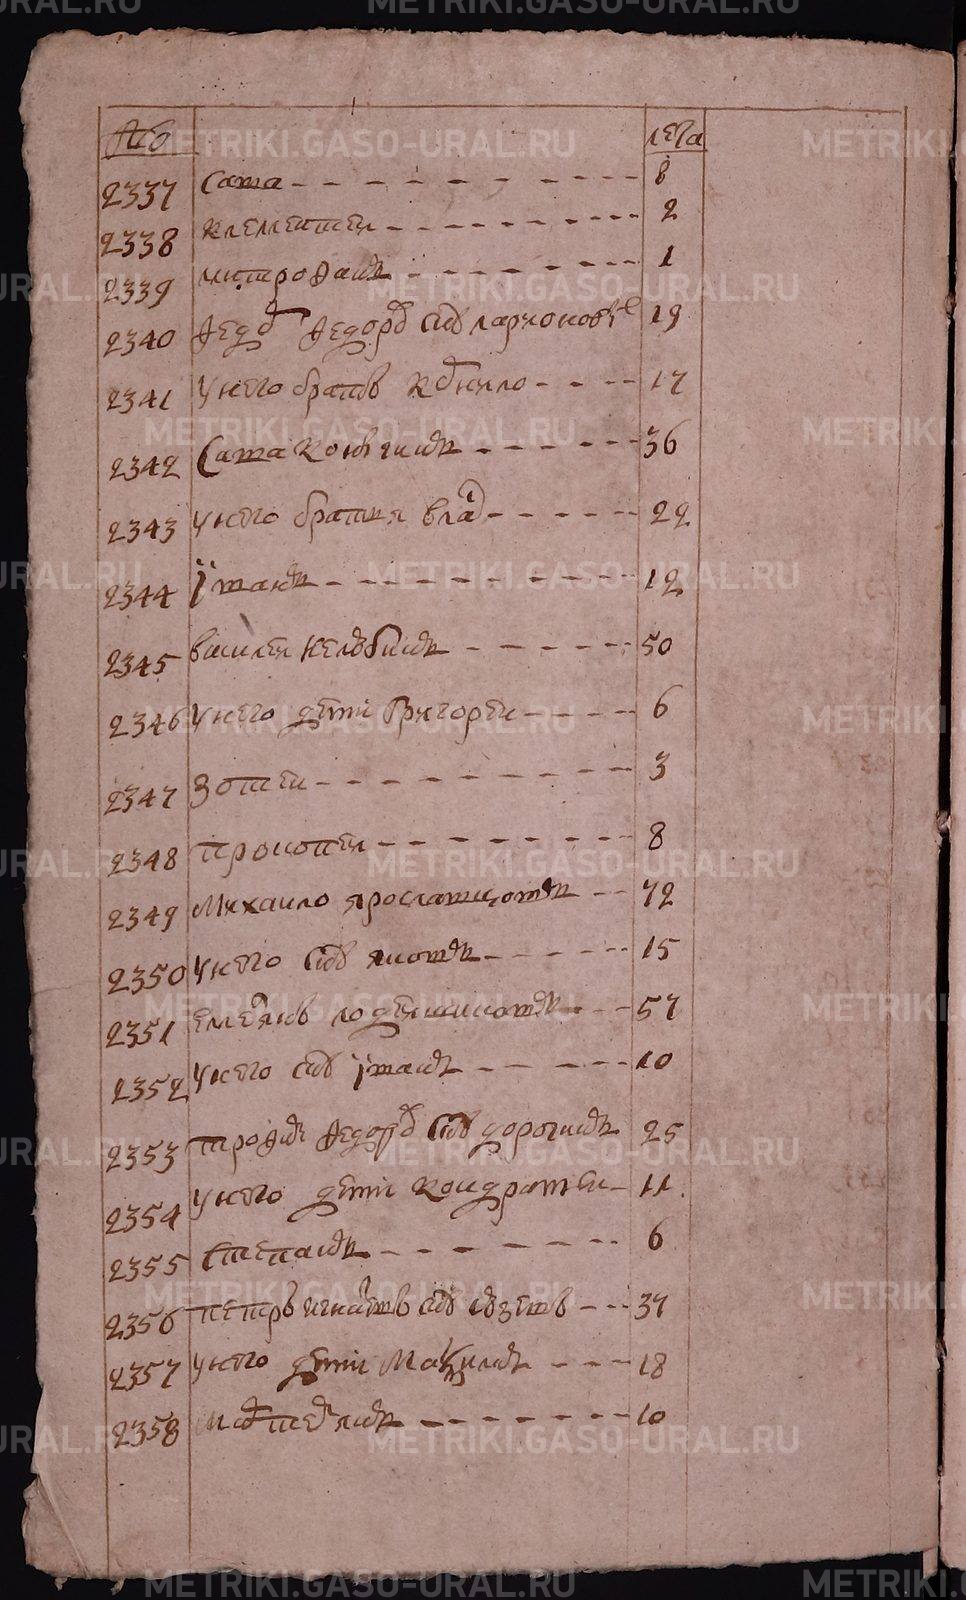 № лета
2337 Сава 8
2338 клементеи 2
2339 митрофанъ 1
2340 Федоръ Федоровъ снъ ларионовых 19
2341 У него братъ 17
2342 Сава 36
2343 У него братия 22
2344 Iванъ 12
2345 василеи 50
2346 У него дети Григореи 6
2347 Зотеи 3
2348 прокопеи 8
2349 Михаило ярославцовъ 72
2350 У него снъ яковъ 15
2351 Емельянъ 57
2352 У него снъ Iванъ 10
2353 трофимъ Федоровъ снъ 25
2354 У него дети кондратеи 11
2355 Степанъ 6
2356 петръ игнатьевъ снъ 37
2357 У него дети Максимъ 18
2358 10
METRIKI.GASO-URAL.RU